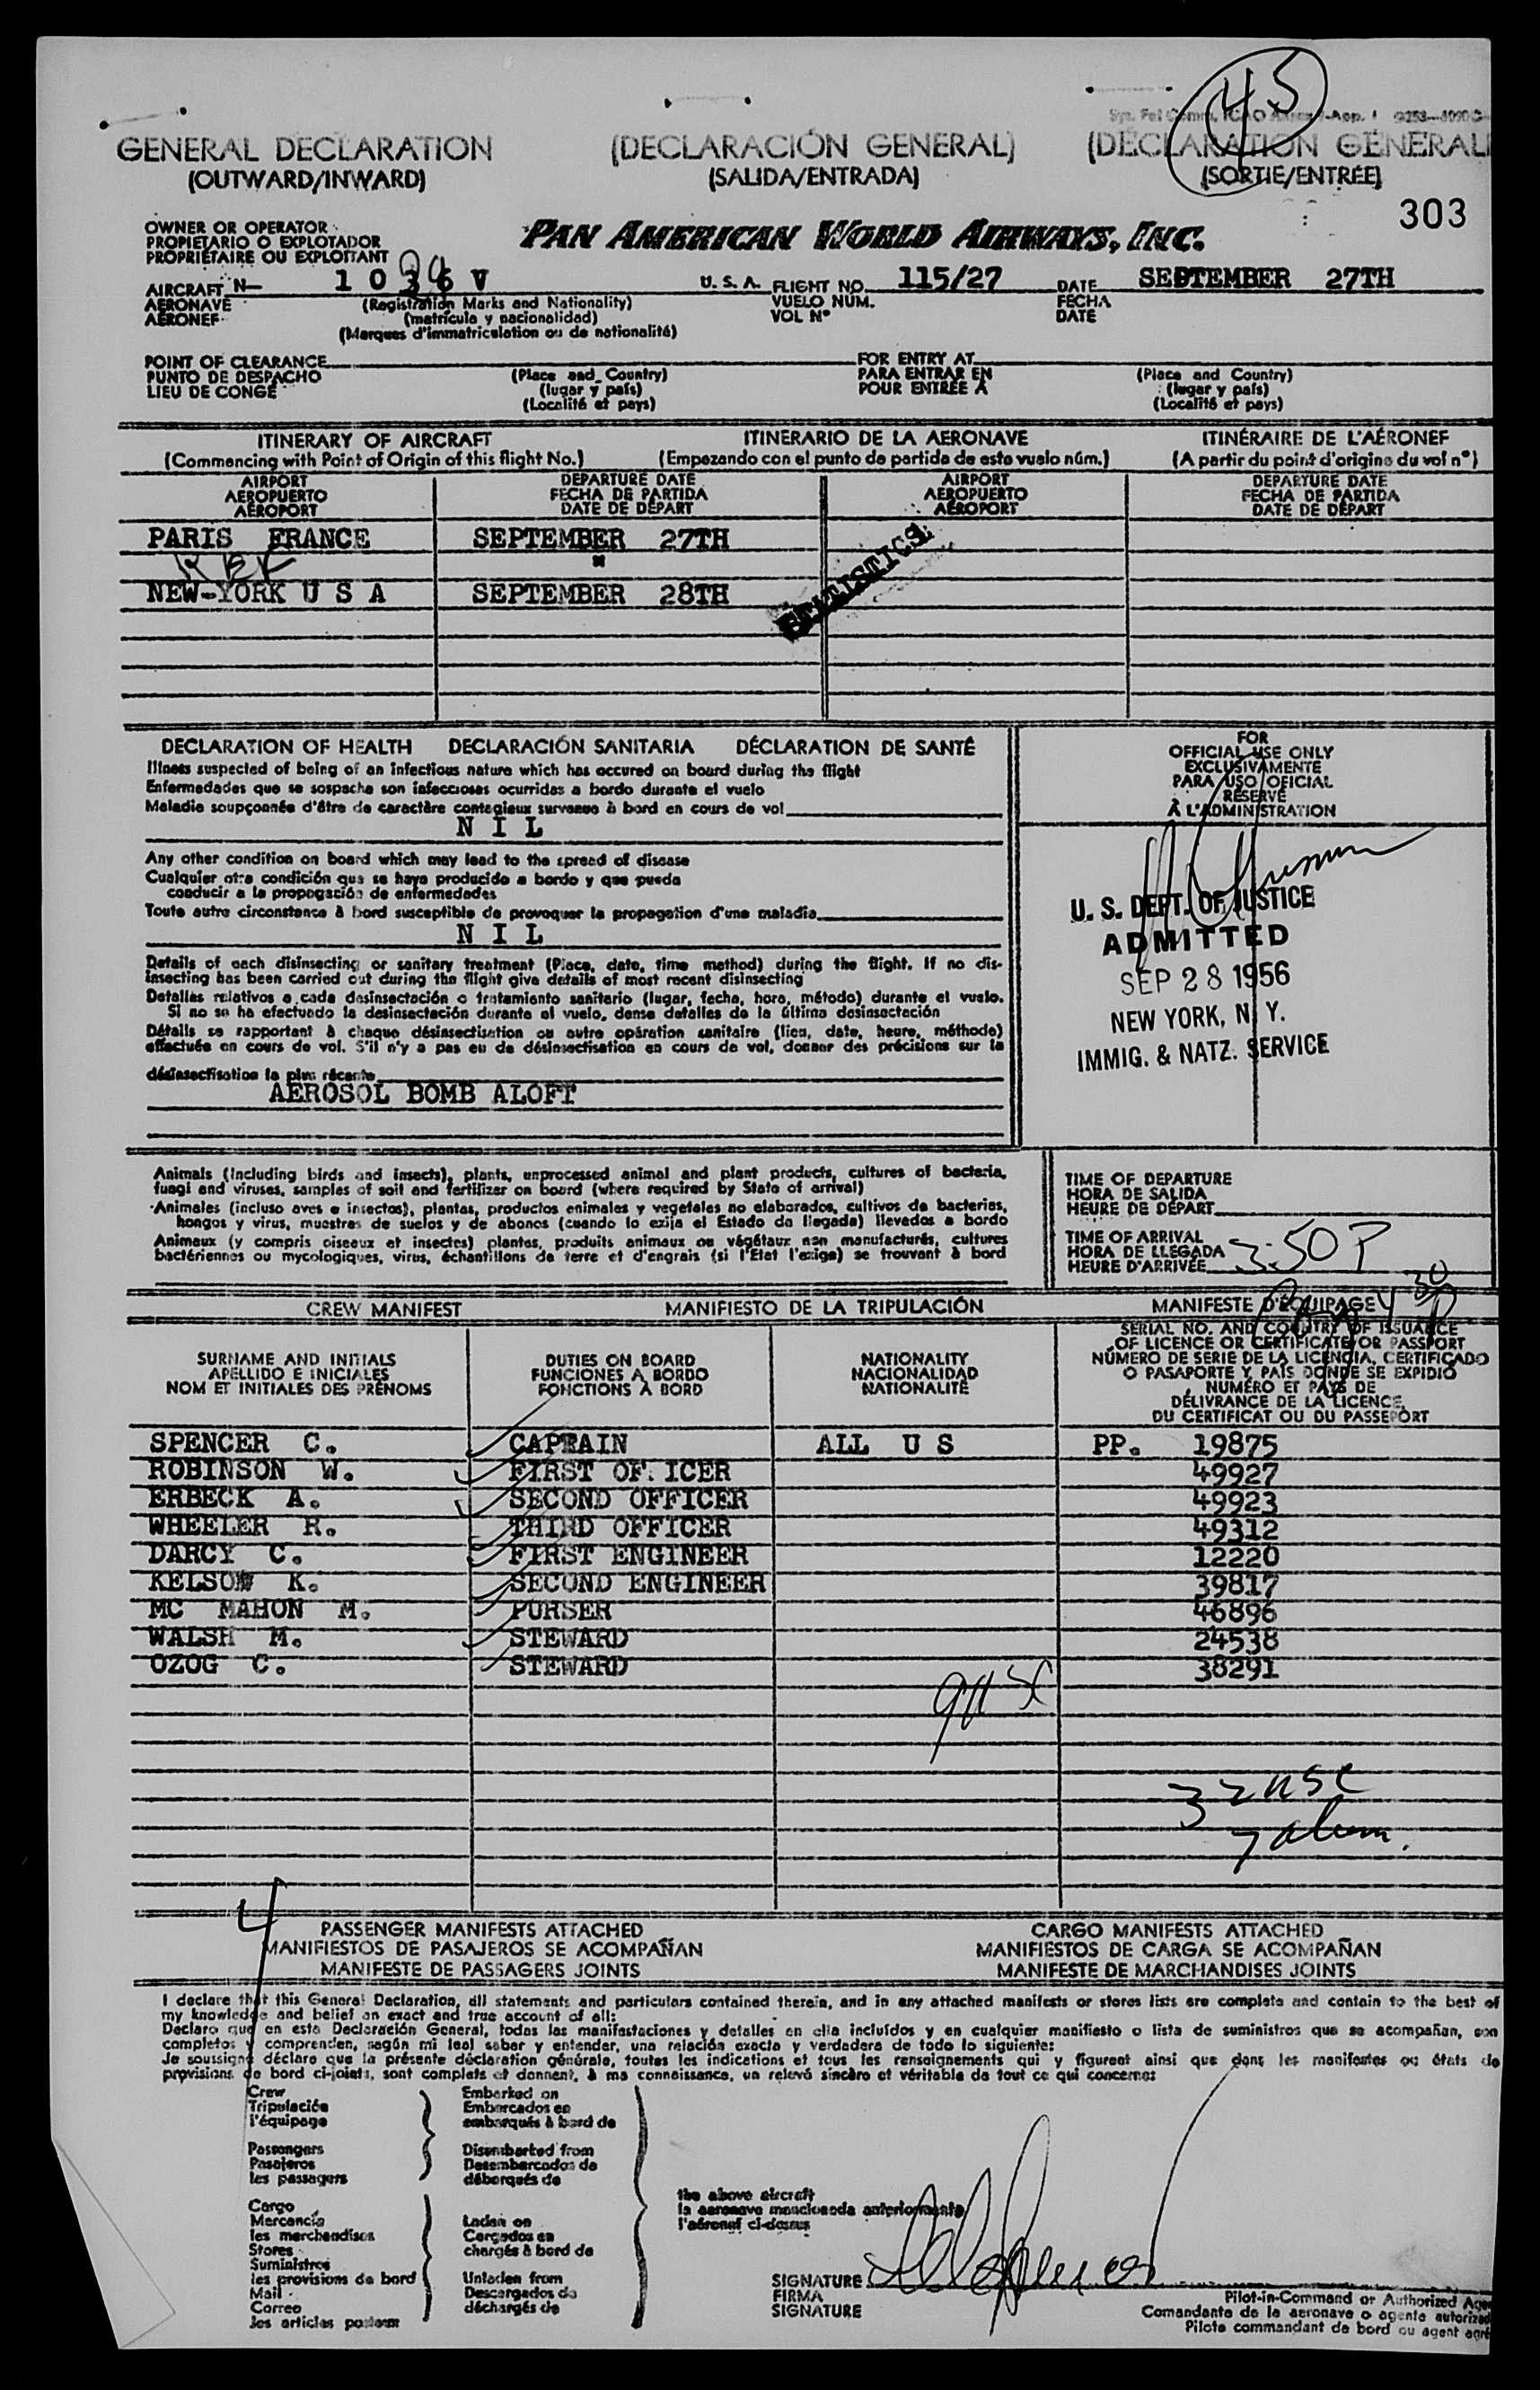 45
GENERAL DECLARATION (DECLARACIÓN GENERAL) (DÉCLARATION GÉNÉRALE
(OUTWARD/INWARD) (SALIDA/ENTRADA) (SORTIE/ENTRÉE)
303
OWNER OR OPERATOR
PROPIETARIO O EXPLOTADOR
PROPRIÉTAIRE OU EXPLOITANT
PAN AMERICAN WORLD AIRWAYS, INC.
AIRCRAFT N— 1 0 3 6 V U. S. A. FLIGHT NO. 115/27 DATE SEPTEMBER 27TH
AERONAVE (Registration Marks and Nationality) VUELO NUM. FECHA
AÉRONEF (matrícula y nacionalidad) VOL Nº DATE
(Marques d'immatriculation ou de nationalité)
POINT OF CLEARANCE FOR ENTRY AT
PUNTO DE DESPACHO (Place and Country) PARA ENTRAR EN (Place and Country)
LIEU DE CONGÉ (lugar y país) POUR ENTRÉE À (lugar y país)
(Localité et pays) (Localité et pays)
ITINERARY OF AIRCRAFT ITINERARIO DE LA AERONAVE ITINÉRAIRE DE L'AÉRONEF
(Commencing with Point of Origin of this flight No.) (Empezando con el punto de partida de este vuelo núm.) (A partir du point d'origine du vol nº)
AIRPORT DEPARTURE DATE AIRPORT DEPARTURE DATE
AEROPUERTO FECHA DE PARTIDA AEROPUERTO FECHA DE PARTIDA
AÉROPORT DATE DE DÉPART AÉROPORT DATE DE DÉPART
PARIS FRANCE SEPTEMBER 27TH
KEF "
NEW-YORK U S A SEPTEMBER 28TH
STATISTICS
DECLARATION OF HEALTH DECLARACIÓN SANITARIA DÉCLARATION DE SANTÉ
Illness suspected of being of an infectious nature which has occured on board during the flight
Enfermedades que se sospecha son infecciosas ocurridas a bordo durante el vuelo
Maladie soupçonnée d'être de caractère contagieux survenue à bord en cours de vol
N I L
Any other condition on board which may lead to the spread of disease
Cualquier otra condición que se haya producido a bordo y que pueda
conducir a la propagación de enfermedades
Toute autre circonstance à bord susceptible de provoquer la propagation d'une maladie
N I L
Details of each disinsecting or sanitary treatment (Place, date, time method) during the flight. If no dis-
insecting has been carried out during the flight give details of most recent disinsecting
Detalles relativos a cada desinsectación o tratamiento sanitario (lugar, fecha, hora, método) durante el vuelo.
Si no se ha efectuado la desinsectación durante el vuelo, dense detalles de la última desinsectación
Détails se rapportant à chaque désinsectisation ou autre opération sanitaire (lieu, date, heure, méthode)
effectuée en cours de vol. S'il n'y a pas eu de désinsectisation en cours de vol, donner des précisions sur la
désinsectisation la plus récente
AEROSOL BOMB ALOFT
FOR
OFFICIAL USE ONLY
EXCLUSIVAMENTE
PARA USO OFICIAL
RÉSERVÉ
À L'ADMINISTRATION
U. S. DEPT. OF JUSTICE
ADMITTED
SEP 28 1956
NEW YORK, N. Y.
IMMIG. & NATZ. SERVICE
Animals (including birds and insects), plants, unprocessed animal and plant products, cultures of bacteria,
fungi and viruses, samples of soil and fertilizer on board (where required by State of arrival)
Animales (incluso aves e insectos), plantas, productos animales y vegetales no elaborados, cultivos de bacterias,
hongos y virus, muestras de suelos y de abonos (cuando lo exija el Estado de llegada) llevados a bordo
Animaux (y compris oiseaux et insectes) plantes, produits animaux ou végétaux non manufacturés, cultures
bactériennes ou mycologiques, virus, échantillons de terre et d'engrais (si l'Etat l'exige) se trouvant à bord
TIME OF DEPARTURE
HORA DE SALIDA
HEURE DE DÉPART
TIME OF ARRIVAL
HORA DE LLEGADA
HEURE D'ARRIVÉE 3:50 P
CREW MANIFEST MANIFIESTO DE LA TRIPULACIÓN MANIFESTE D'ÉQUIPAGE
SURNAME AND INITIALS
APELLIDO E INICIALES
NOM ET INITIALES DES PRÉNOMS
DUTIES ON BOARD
FUNCIONES A BORDO
FONCTIONS À BORD
NATIONALITY
NACIONALIDAD
NATIONALITÉ
SERIAL NO. AND COUNTRY OF ISSUANCE
OF LICENCE OR CERTIFICATE OR PASSPORT
NÚMERO DE SERIE DE LA LICENCIA, CERTIFICADO
O PASAPORTE Y PAÍS DONDE SE EXPIDIÓ
NUMÉRO ET PAYS DE
DÉLIVRANCE DE LA LICENCE,
DU CERTIFICAT OU DU PASSEPORT
SPENCER C. CAPTAIN ALL U S PP. 19875
ROBINSON W. FIRST OF ICER 49927
ERBECK A. SECOND OFFICER 49923
WHEELER R. THIRD OFFICER 49312
DARCY C. FIRST ENGINEER 12220
KELSON K. SECOND ENGINEER 39817
MC MAHON M. PURSER 46896
WALSH M. STEWARD 24538
OZOG C. STEWARD 38291
32 USC
7 alien
4
PASSENGER MANIFESTS ATTACHED CARGO MANIFESTS ATTACHED
MANIFIESTOS DE PASAJEROS SE ACOMPAÑAN MANIFIESTOS DE CARGA SE ACOMPAÑAN
MANIFESTE DE PASSAGERS JOINTS MANIFESTE DE MARCHANDISES JOINTS
I declare that this General Declaration, all statements and particulars contained therein, and in any attached manifests or stores lists are complete and contain to the best of
my knowledge and belief an exact and true account of all:
Declaro que en esta Declaración General, todas las manifestaciones y detalles en ella incluídos y en cualquier manifiesto o lista de suministros que se acompañan, son
completos y comprenden, según mi leal saber y entender, una relación exacta y verdadera de todo lo siguiente:
Je soussigné déclare que la présente déclaration générale, toutes les indications et tous les renseignements qui y figurent ainsi que dans les manifestes ou états de
provisions de bord ci-joints, sont complets et donnent, à ma connaissance, un relevé sincère et véritable de tout ce qui concerne:
Crew Embarked on
Tripulación Embarcados en
l'équipage embarqués à bord de
Passengers Disembarked from
Pasajeros Desembarcados de
les passagers débarqués de
the above aircraft
la aeronave mencionada anteriormente
l'aéronef ci-dessus
Cargo
Mercancía Laden on
les marchandises Cargados en
Stores chargés à bord de
Suministros
les provisions de bord Unladen from
Mail Descargados de
Correo déchargés de
les articles postaux
SIGNATURE
FIRMA
SIGNATURE
Pilot-in-Command or Authorized Age
Comandante de la aeronave o agente autorizad
Pilote commandant de bord ou agent agré